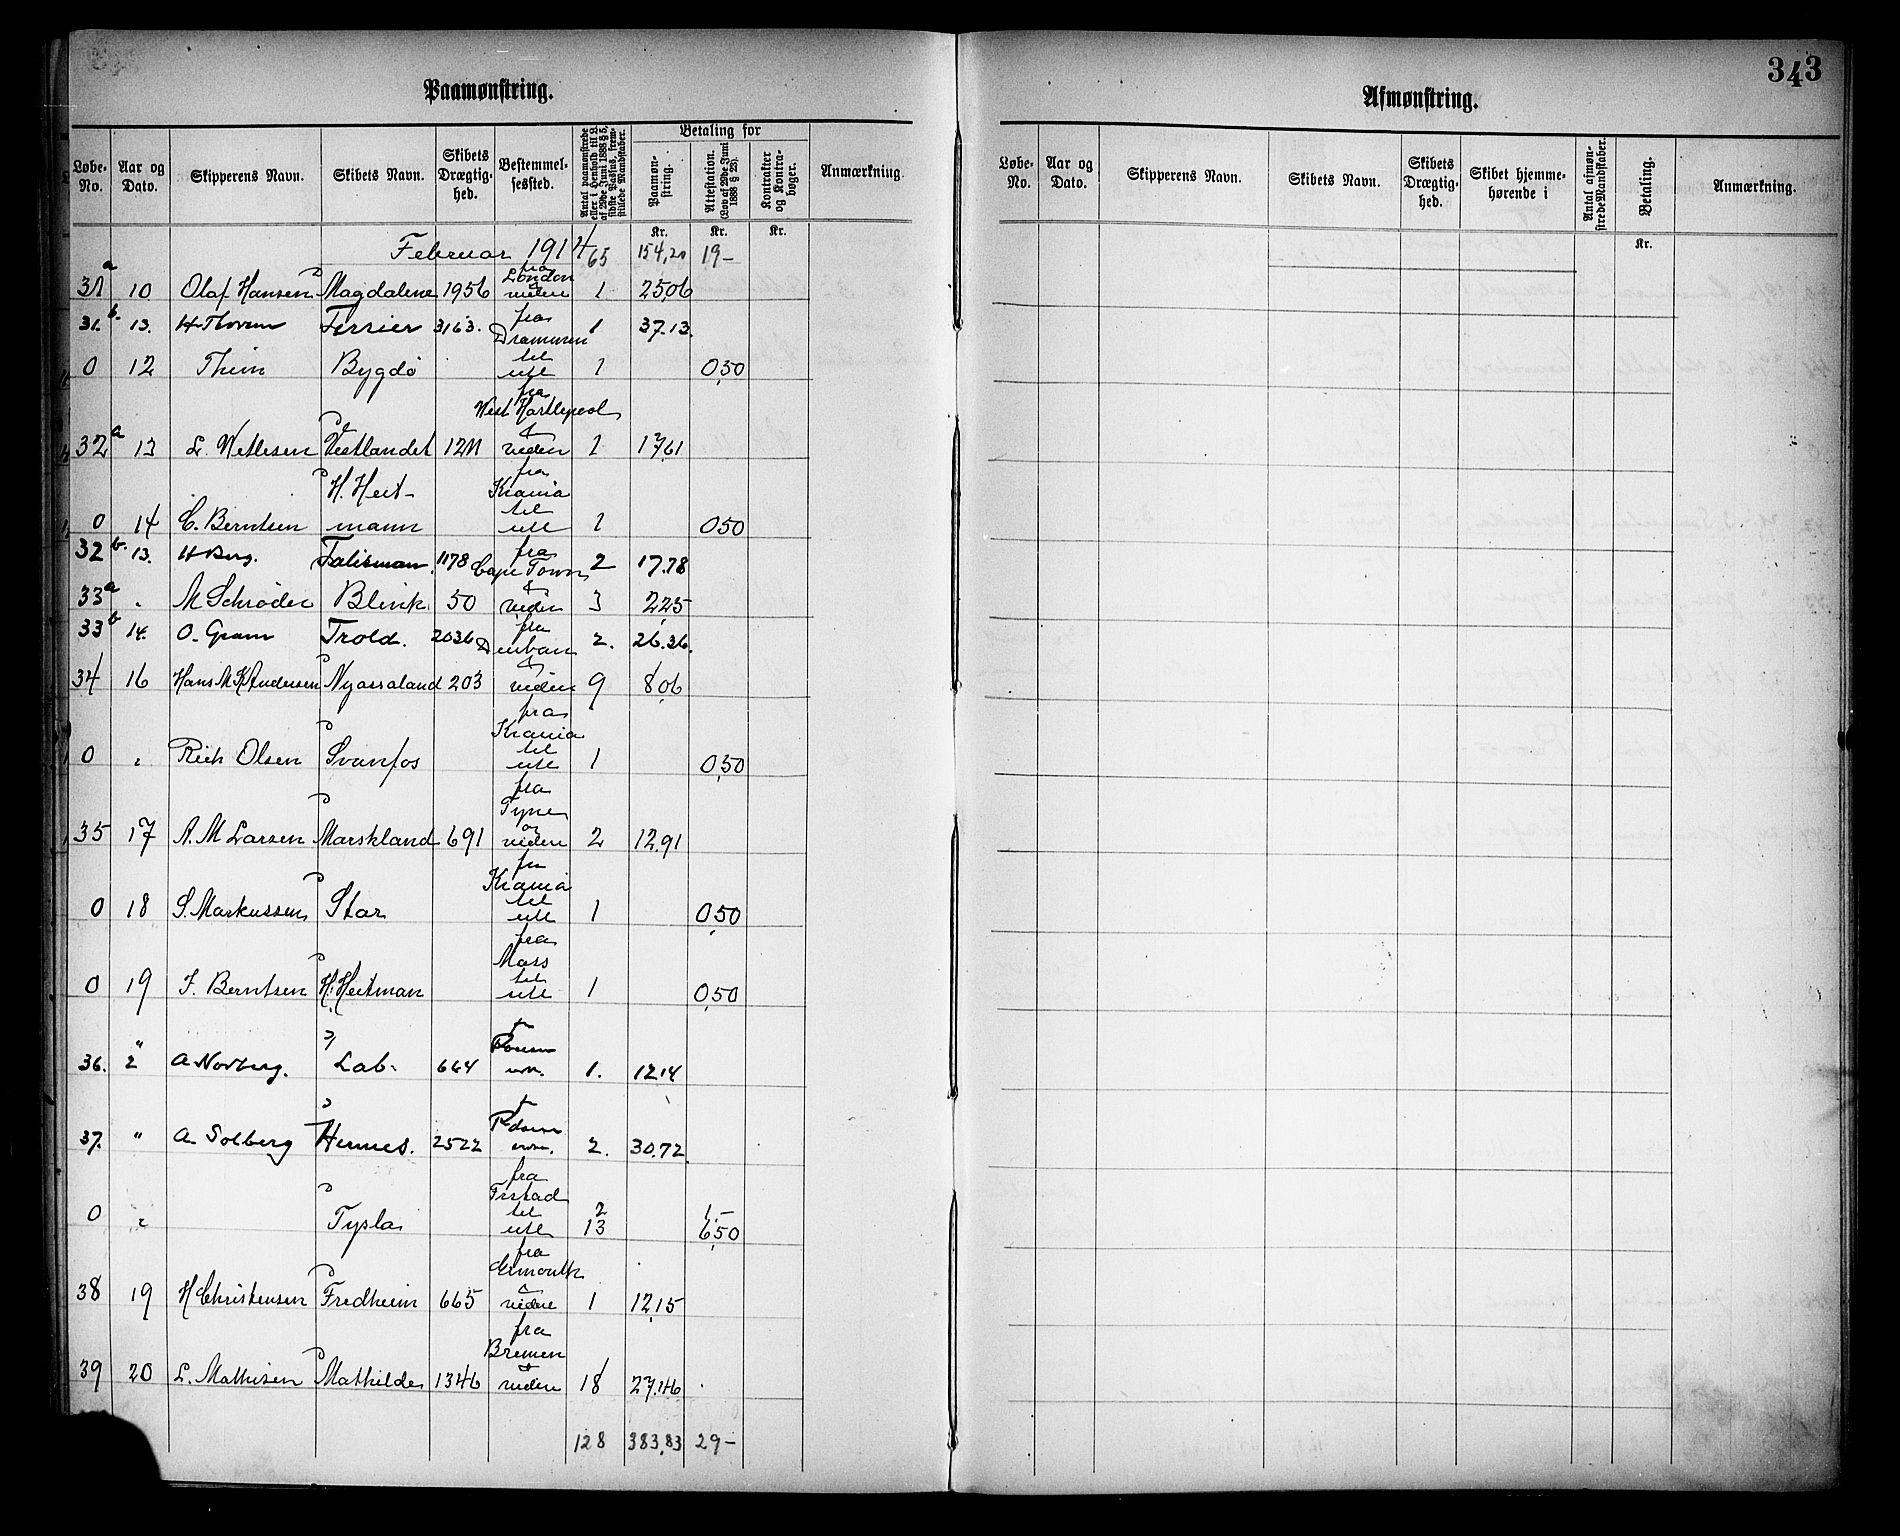 343
Paamønstring.
Løbe-No. Aar og Dato. Skipperens Navn. Skibets Navn. Skibets Drægtighed. Bestemmelsessted. Antal paamønstrede eller i Henhold til L. af 29de Juni 1888 § 5, sidste Passus, fremstillede Mandskaber. Betaling for Paamønstring. Attestation. (Lov af 29de Juni 1888 § 23). Kontrakter og Kontrabøger. Anmærkning.
Kr. Kr. Kr.
Februar 1914 65 154,20 19-
31 a 10 Olaf Hansen Magdalene 1956 fra London & videre 1 25,06
31. b. 13. H Thorsen Terrier 3163. 1 37.13.
0 12 Thim Bygdø fra Drammen til ute 1 0,50
32 a 13 L. Wetlesen Vestlandet 1211 fra West Hartlepool & videre 1 17,61
0 14 C. Berntsen H. Heitmann fra Krania til ute 1 0,50
32 b. 13. H Berg. Talisman. 1178 fra Cape Town 2 17.78
33 a " M Schrøder Blink 50 & videre 3 2,25
33 b 14. O. Gram Trold. 2036 fra Durban 2. 26.36.
34 16 Hans M K Andersen Nyassaland 203 & videre 9 8,06
0 " Rich Olsen Svanfos fra Krania til ute 1 0,50
35 17 A. M Larsen Marskland 691 fra Tyne og videre 2 12.91
0 18 S. Markussen Star fra Krania til ute 1 0,50
0 19 J. Berntsen H. Heitman fra Moss til ute 1 0,50
36. " A Norberg. Lab. 664 1. 12.14
37. " A Solberg Hermes. 2522 2. 30.72.
0 " Tysla fra Frstad til ute 2 13 1.- 6,50
38 19 H Christensen Fredheim 665 fra & videre 1 12,15
39 20 L. Mathisen Mathilde 1346 fra Bremen & videre 18 27,46
128 383,83 29-
Afmønstring.
Løbe-No. Aar og Dato. Skipperens Navn. Skibets Navn. Skibets Drægtighed. Skibet hjemmehørende i Antal afmønstrede Mandskaber. Betaling. Anmærkning.
Kr.